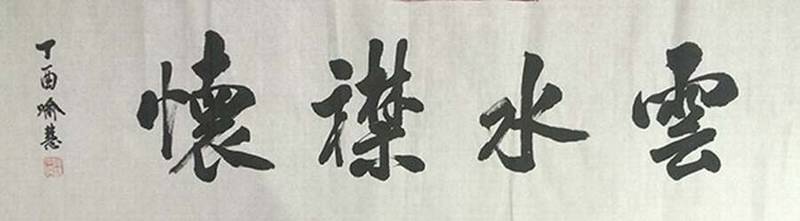 雲水襟懷
丁酉喻慧